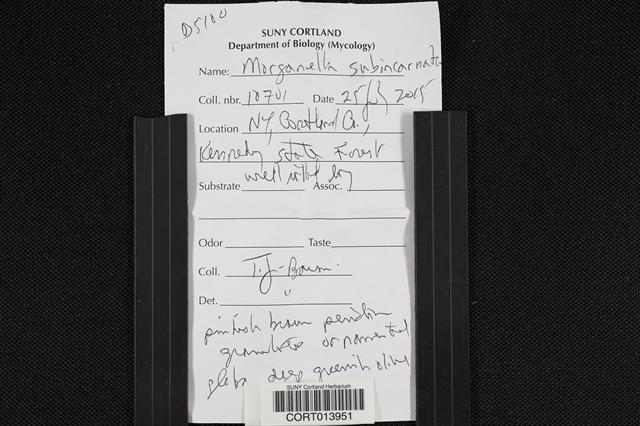 D5100
SUNY CORTLAND
Department of Biology (Mycology)
Name: Morganella subincarnata
Coll. nbr. 10701 Date 25 July 2015
Location NY, Cortland Co.,
Kennedy State Forest
Substrate well rotted log Assoc.
Odor Taste
Coll. T.J. Baroni
Det. "
pinkish brown peridium
granulate ornamented
gleba deep greenish olive
SUNY Cortland Herbarium
CORT013951